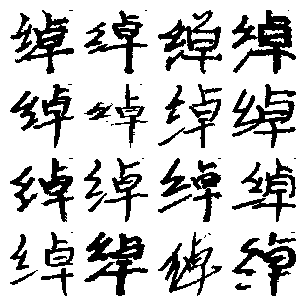 绰绰绰绰
绰绰绰绰
绰绰绰绰
绰绰绰绰